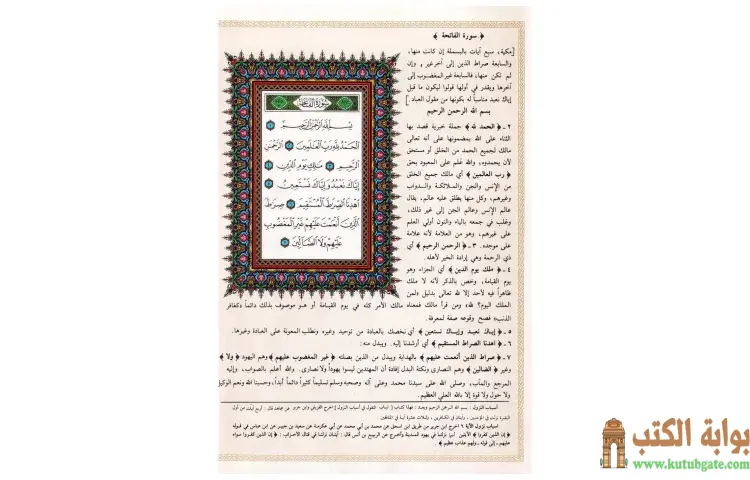 ﴿ سورة الفاتحة ﴾
[مكية، سبع آيات بالبسملة إن كانت منها،
والسابعة صراط الذين إلى آخرغير، وإن
لم تكن منها، فالسابعة غير المغضوب إلى
آخرها ويقدر في أولها قولوا ليكون ما قبل
إياك نعبد مناسباً له بكونها من مقول العباد]
بسم الله الرحمن الرحيم
٢ ـ ﴿الحمد لله﴾ جملة خبرية قصد بها
الثناء على الله بمضمونها على أنه تعالى
مالك لجميع الحمد من الخلق أو مستحق
لأن يحمدوه، والله علم على المعبود بحق
﴿رب العالمين﴾ أي مالك جميع الخلق
من الإنس والجن والملائكة والدواب
وغيرهم، وكل منها يطلق عليه عالم، يقال
عالم الإنس وعالم الجن إلى غير ذلك،
وغلب في جمعه بالياء والنون أولي العلم
على غيرهم، وهو من العلامة لأنه علامة
على موجده. ٣ ـ ﴿الرحمن الرحيم﴾ أي
ذي الرحمة وهي إرادة الخير لأهله.
٤ ـ ﴿ملك يوم الدين﴾ أي الجزاء وهو
يوم القيامة، وخص بالذكر لأنه لا ملك
ظاهراً فيه لأحد إلا لله تعالى بدليل «لمن
الملك اليوم؟ لله» ومن قرأ مالك فمعناه
مالك الأمر كله في يوم القيامة أو هو موصوف بذلك دائماً «كغافر
الذنب» فصح وقوعه صفة لمعرفة.
سورة الفاتحة
بسم الله الرحمن الرحيم ١
الحمد لله رب العالمين ٢ الرحمن
الرحيم ٣ ملك يوم الدين ٤
إياك نعبد وإياك نستعين ٥
اهدنا الصرط المستقيم ٦ صرط
الذين أنعمت عليهم غير المغضوب
عليهم ولا الضالين ٧
٥ ـ ﴿إياك نعبد وإياك نستعين﴾ أي نخصك بالعبادة من توحيد وغيره ونطلب المعونة على العبادة وغيرها.
٦ ـ ﴿اهدنا الصراط المستقيم﴾ أي أرشدنا إليه. ويبدل منه:
٧ ـ ﴿صراط الذين أنعمت عليهم﴾ بالهداية ويبدل من الذين بصلته ﴿غير المغضوب عليهم﴾ وهم اليهود ﴿ولا﴾
وغير ﴿الضالين﴾ وهم النصارى ونكتة البدل إفادة أن المهتدين ليسوا يهوداً ولا نصارى. والله أعلم بالصواب، وإليه
المرجع والمآب، وصلى الله على سيدنا محمد وعلى آله وصحبه وسلم تسليماً كثيراً دائماً أبداً، وحسبنا الله ونعم الوكيل
ولا حول ولا قوة إلا بالله العلي العظيم.
أسباب النزول : بسم الله الرحمن الرحيم وبعد : فهذا كتاب أسباب النزول
بوابة الكتب
www.kutubgate.com